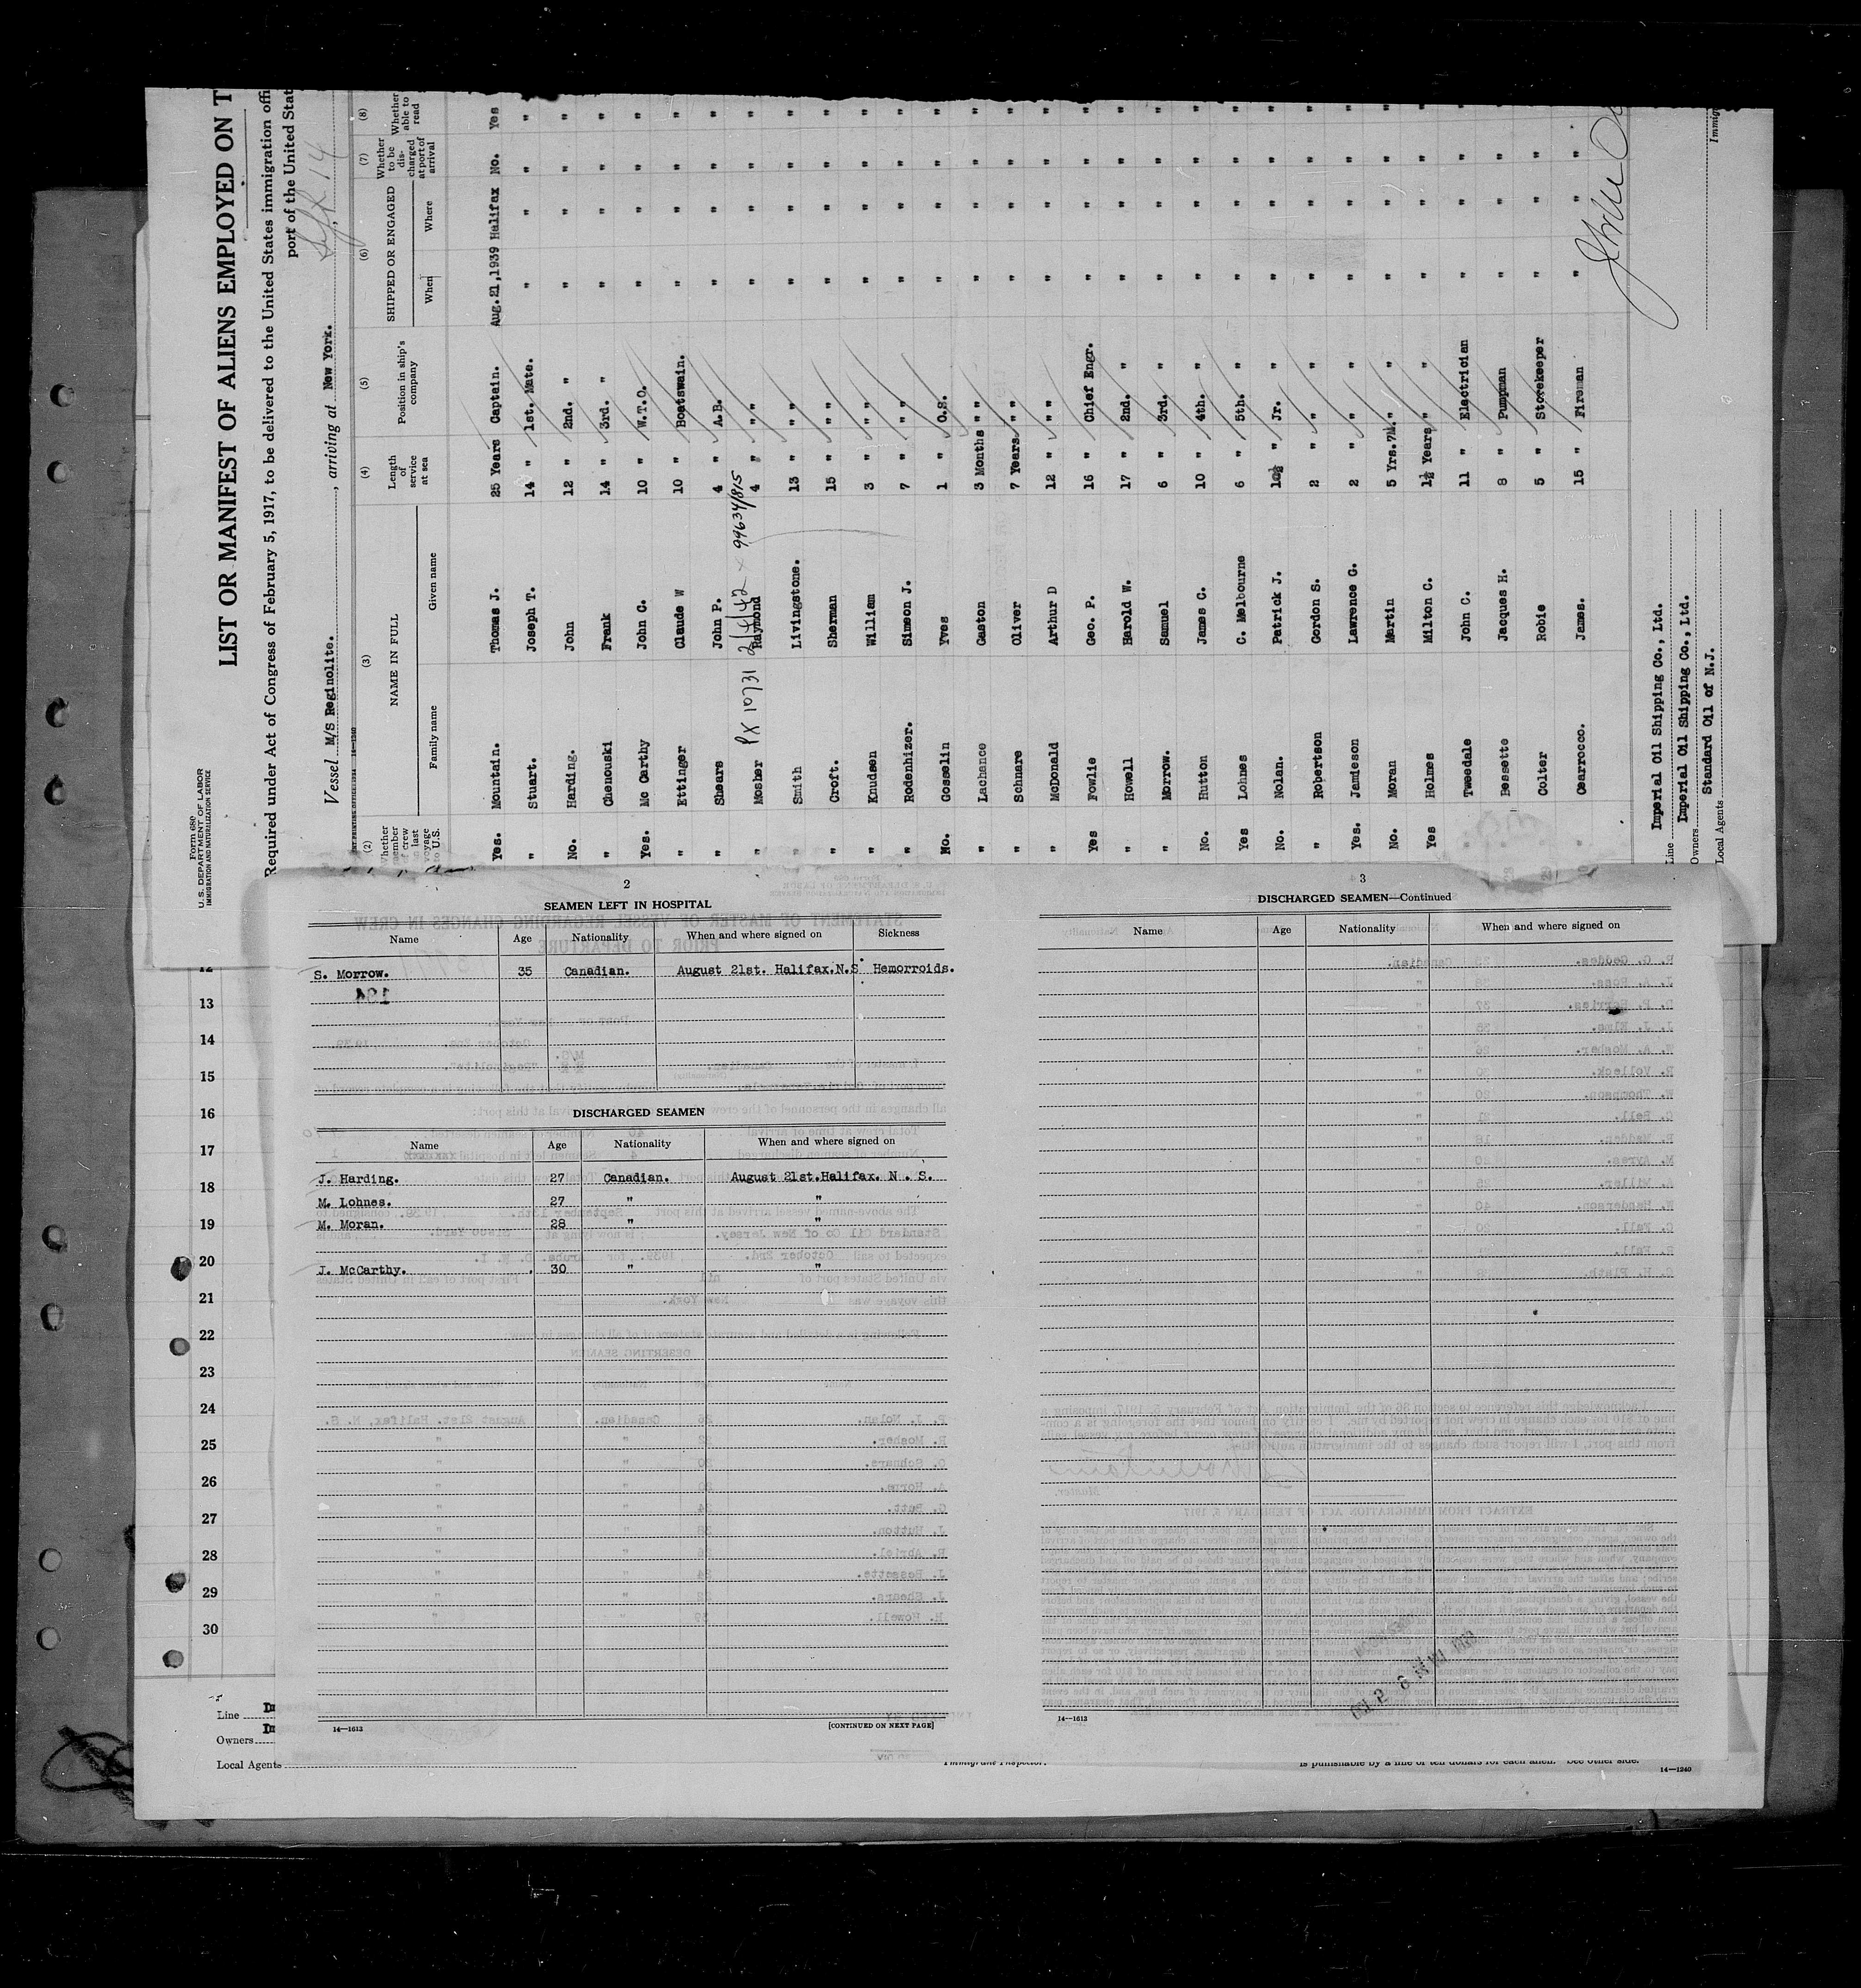 Form 680
U. S. DEPARTMENT OF LABOR
IMMIGRATION AND NATURALIZATION SERVICE
LIST OR MANIFEST OF ALIENS EMPLOYED ON T
Required under Act of Congress of February 5, 1917, to be delivered to the United States immigration offi
port of the United Stat
Vessel M/S Reginolite. , arriving at New York. , Sept 14
(2) (3) (4) (5) (6) (7) (8)
Whether member of crew last voyage to U.S. NAME IN FULL Length of service at sea Position in ship's company SHIPPED OR ENGAGED Whether to be discharged at port of arrival Whether able to read
Family name Given name When Where
Yes. Mountain. Thomas J. 25 Years Captain. Aug. 21, 1939 Halifax No. Yes
" Stuart. Joseph T. 14 " 1st. Mate. " " " "
No. Harding. John 12 " 2nd. " " " " "
" Chenouski Frank 14 " 3rd. " " " " "
Yes. Mc Carthy John C. 10 " W.T.O. " " " "
" Ettinger Claude W 10 " Boatswain. " " " "
" Shears John P. 4 " A.B. " " " "
PX 10731 2/4/42 x 99634/815
" Mosher Raymond 4 " " " " " " "
" Smith Livingstone. 13 " " " " " " "
" Croft. Sherman 15 " " " " " " "
" Knudsen William 3 " " " " " " "
" Rodenhizer. Simeon J. 7 " " " " " " "
No. Gosselin Yves 1 " O.S. " " " "
" Lachance Gaston 3 Months " " " " " "
" Schnare Oliver 7 Years. " " " " " "
" McDonald Arthur D 12 " " " " " " "
Yes Fowlie Geo. P. 16 " Chief Engr. " " " "
" Howell Harold W. 17 " 2nd. " " " " "
" Morrow. Samuel 6 " 3rd. " " " " "
No. Hutton James C. 10 " 4th. " " " " "
Yes Lohnes C. Melbourne 6 " 5th. " " " " "
No. Nolan. Patrick J. 10½ " Jr. " " " " "
" Robertson Gordon S. 2 " " " " " " "
Yes. Jamieson Lawrence G. 2 " " " " " " "
No. Moran Martin 5 Yrs. 7M. " " " " " "
Yes Holmes Milton C. 1½ Years " " " " " "
Tweedale John C. 11 " Electrician " " " "
Bessette Jacques H. 8 " Pumpman " " " "
Colter Robie 5 " Storekeeper " " " "
Cearrocco. James. 15 " Fireman " " "
Line Imperial Oil Shipping Co., Ltd.
Owners Imperial Oil Shipping Co., Ltd.
Local Agents Standard Oil of N.J.
Immig
2
SEAMEN LEFT IN HOSPITAL
Name Age Nationality When and where signed on Sickness
S. Morrow. 35 Canadian. August 21st. Halifax.N.S. Hemorroids.
DISCHARGED SEAMEN
Name Age Nationality When and where signed on
J. Harding. 27 Canadian. August 21st.Halifax. N . S.
M. Lohnes. 27 " "
M. Moran. 28 " "
J. McCarthy. 30 " "
14—1613 [CONTINUED ON NEXT PAGE]
3
DISCHARGED SEAMEN—Continued
Name Age Nationality When and where signed on
14—1613
12
13
14
15
16
17
18
19
20
21
22
23
24
25
26
27
28
29
30
Line
Owners
Local Agents
Immigrant Inspector.
is punishable by a fine of ten dollars for each alien. See other side.
14—1240